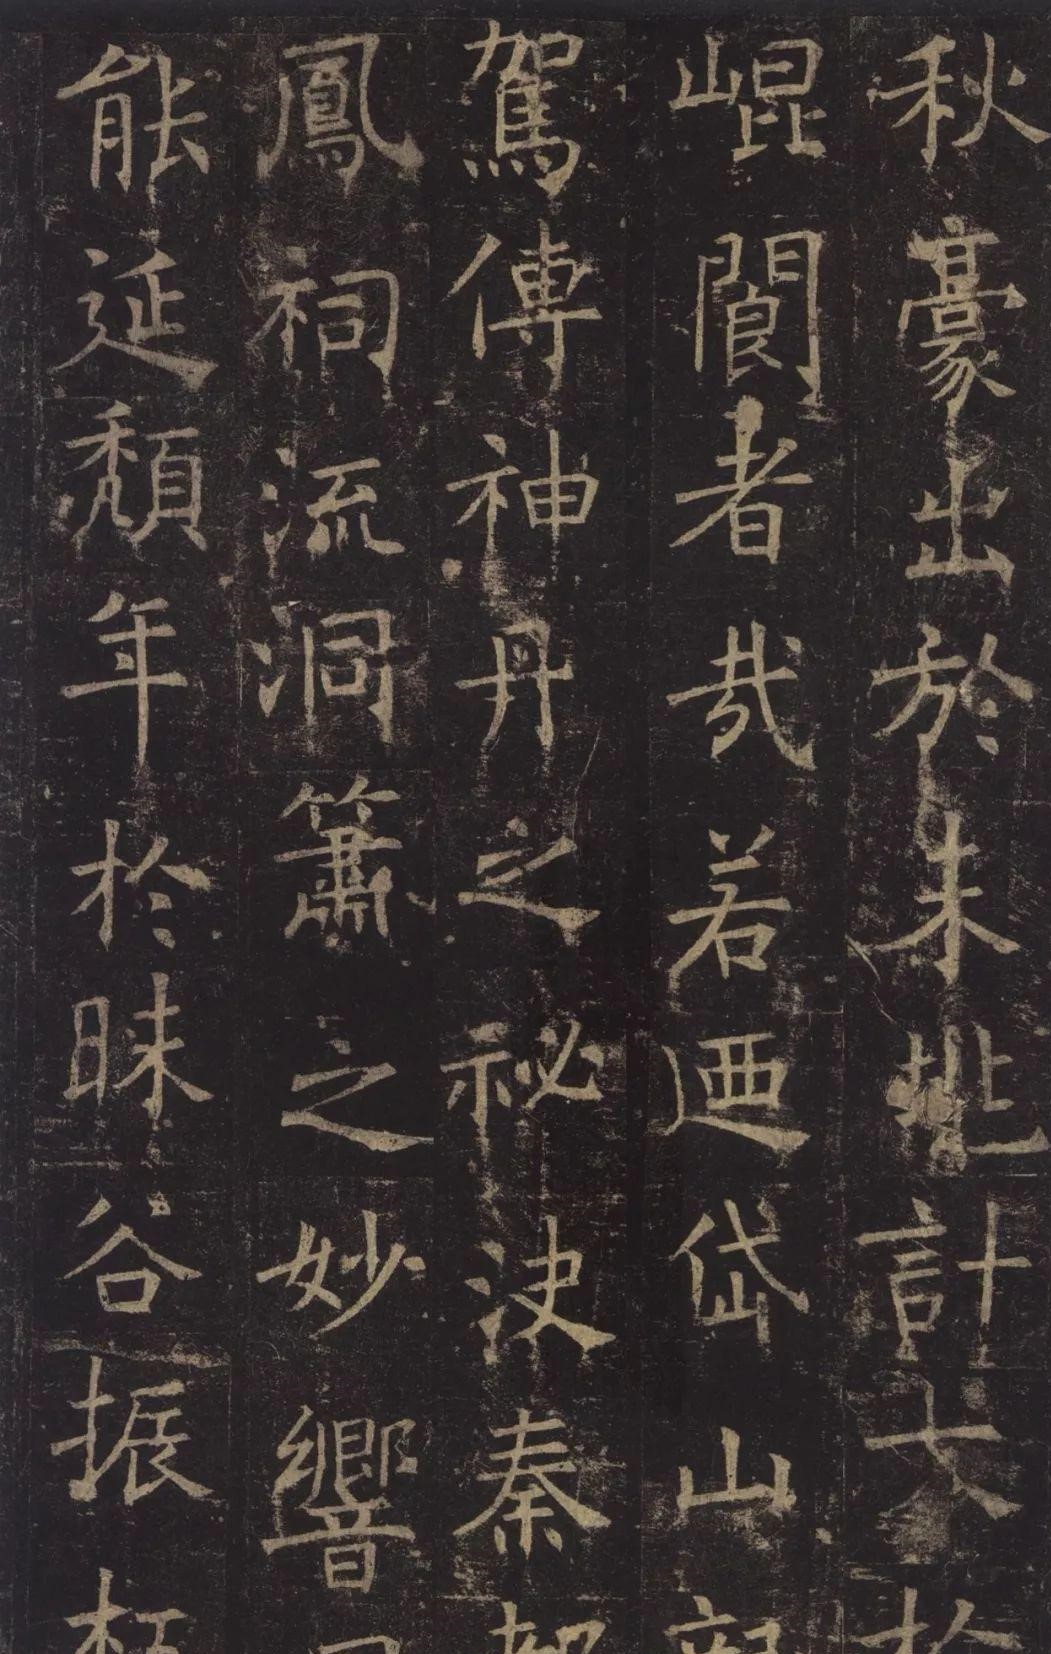 秋豪出於未兆計大於
崐閬者㢤若迺岱山
駕傳神丹之祕決秦
鳳祠流洞簫之妙響
能延頹年於昧谷振枯